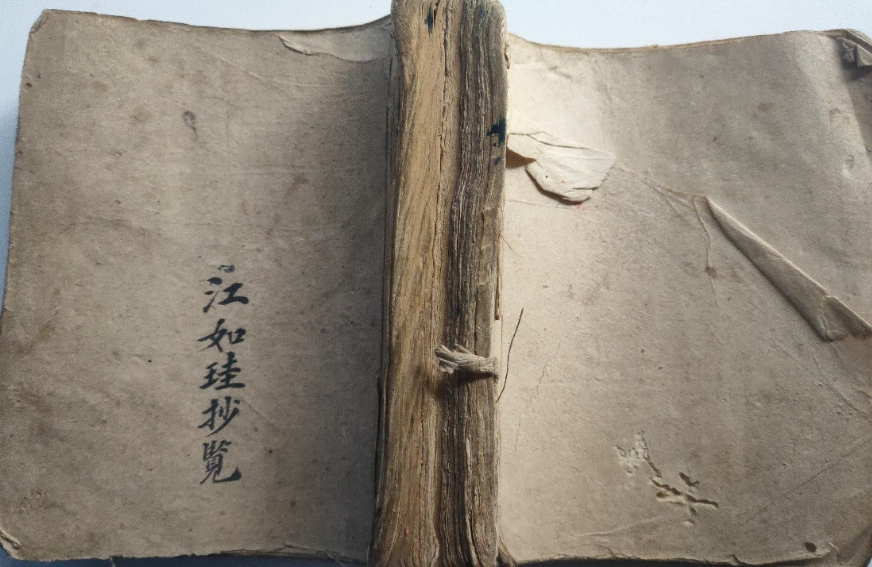 江如珪抄覧